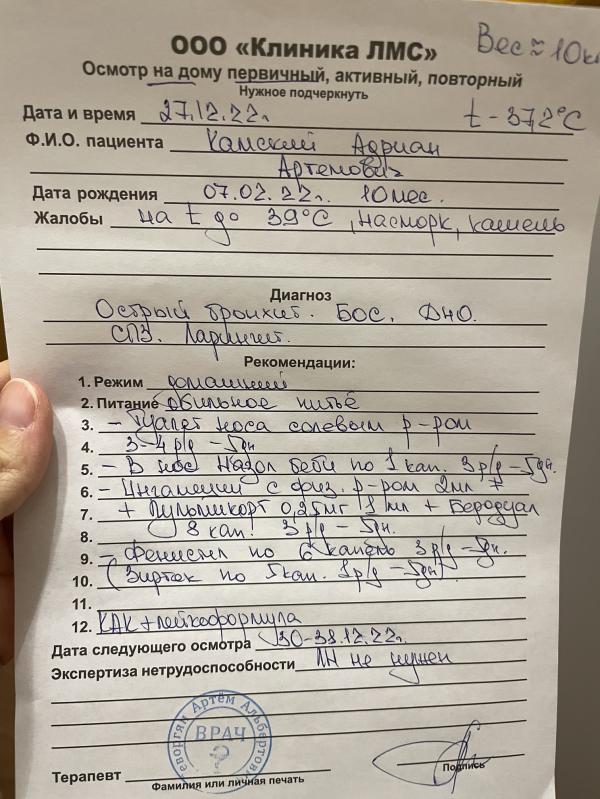 Вес ≈ 10к
ООО «Клиника ЛМС»
Осмотр на дому первичный, активный, повторный
Нужное подчеркнуть
t - 37,2°С
Дата и время 27.12.22г.
Ф.И.О. пациента Камский Адриан
Артемович
Дата рождения 07.02.22г. 10 мес.
Жалобы на t до 39°С, насморк, кашель
Диагноз
Острый бронхит. БОС. ДНО.
СПЗ. Ларингит.
Рекомендации:
1. Режим домашний
2. Питание обильное питьё
3. - Туалет носа солевым р-ром
4. 3-4 р/д - 5дн
5. - В нос Назол беби по 1 кап. 3 р/д - 5дн.
6. - Ингаляции с физ. р-ром 2мл +
7. + Пульмикорт 0,25мг 1 мл + Беродуал
8. 8 кап! 3 р/д - 5дн.
9. - Фенистил по 6 капель 3 р/д -
10. (Зиртек по 5 кап. р/д - 5дн)
11.
12. КАК + лейкоформула
Дата следующего осмотра 30-31.12.22г.
Экспертиза нетрудоспособности ЛН не нужен
еворгян Артём Альбертов
ВРАЧ
Терапевт
Фамилия или личная печать
Подпись